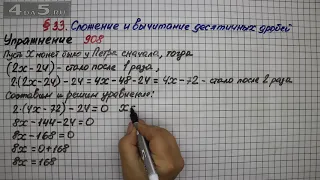 4 5
§ 33. Сложение и вычитание десятичных дробей
Упражнение 908
Пусть x монет было у Петра сначала, тогда
(2x-24) - стало после 1 раза;
2·(2x-24)-24 = 4x-48-24 = 4x-72 - стало после 2 раза
Составим и решим уравнение:
2·(4x-72)-24=0 x=
8x-144-24=0
8x-168=0
8x=0+168
8x=168